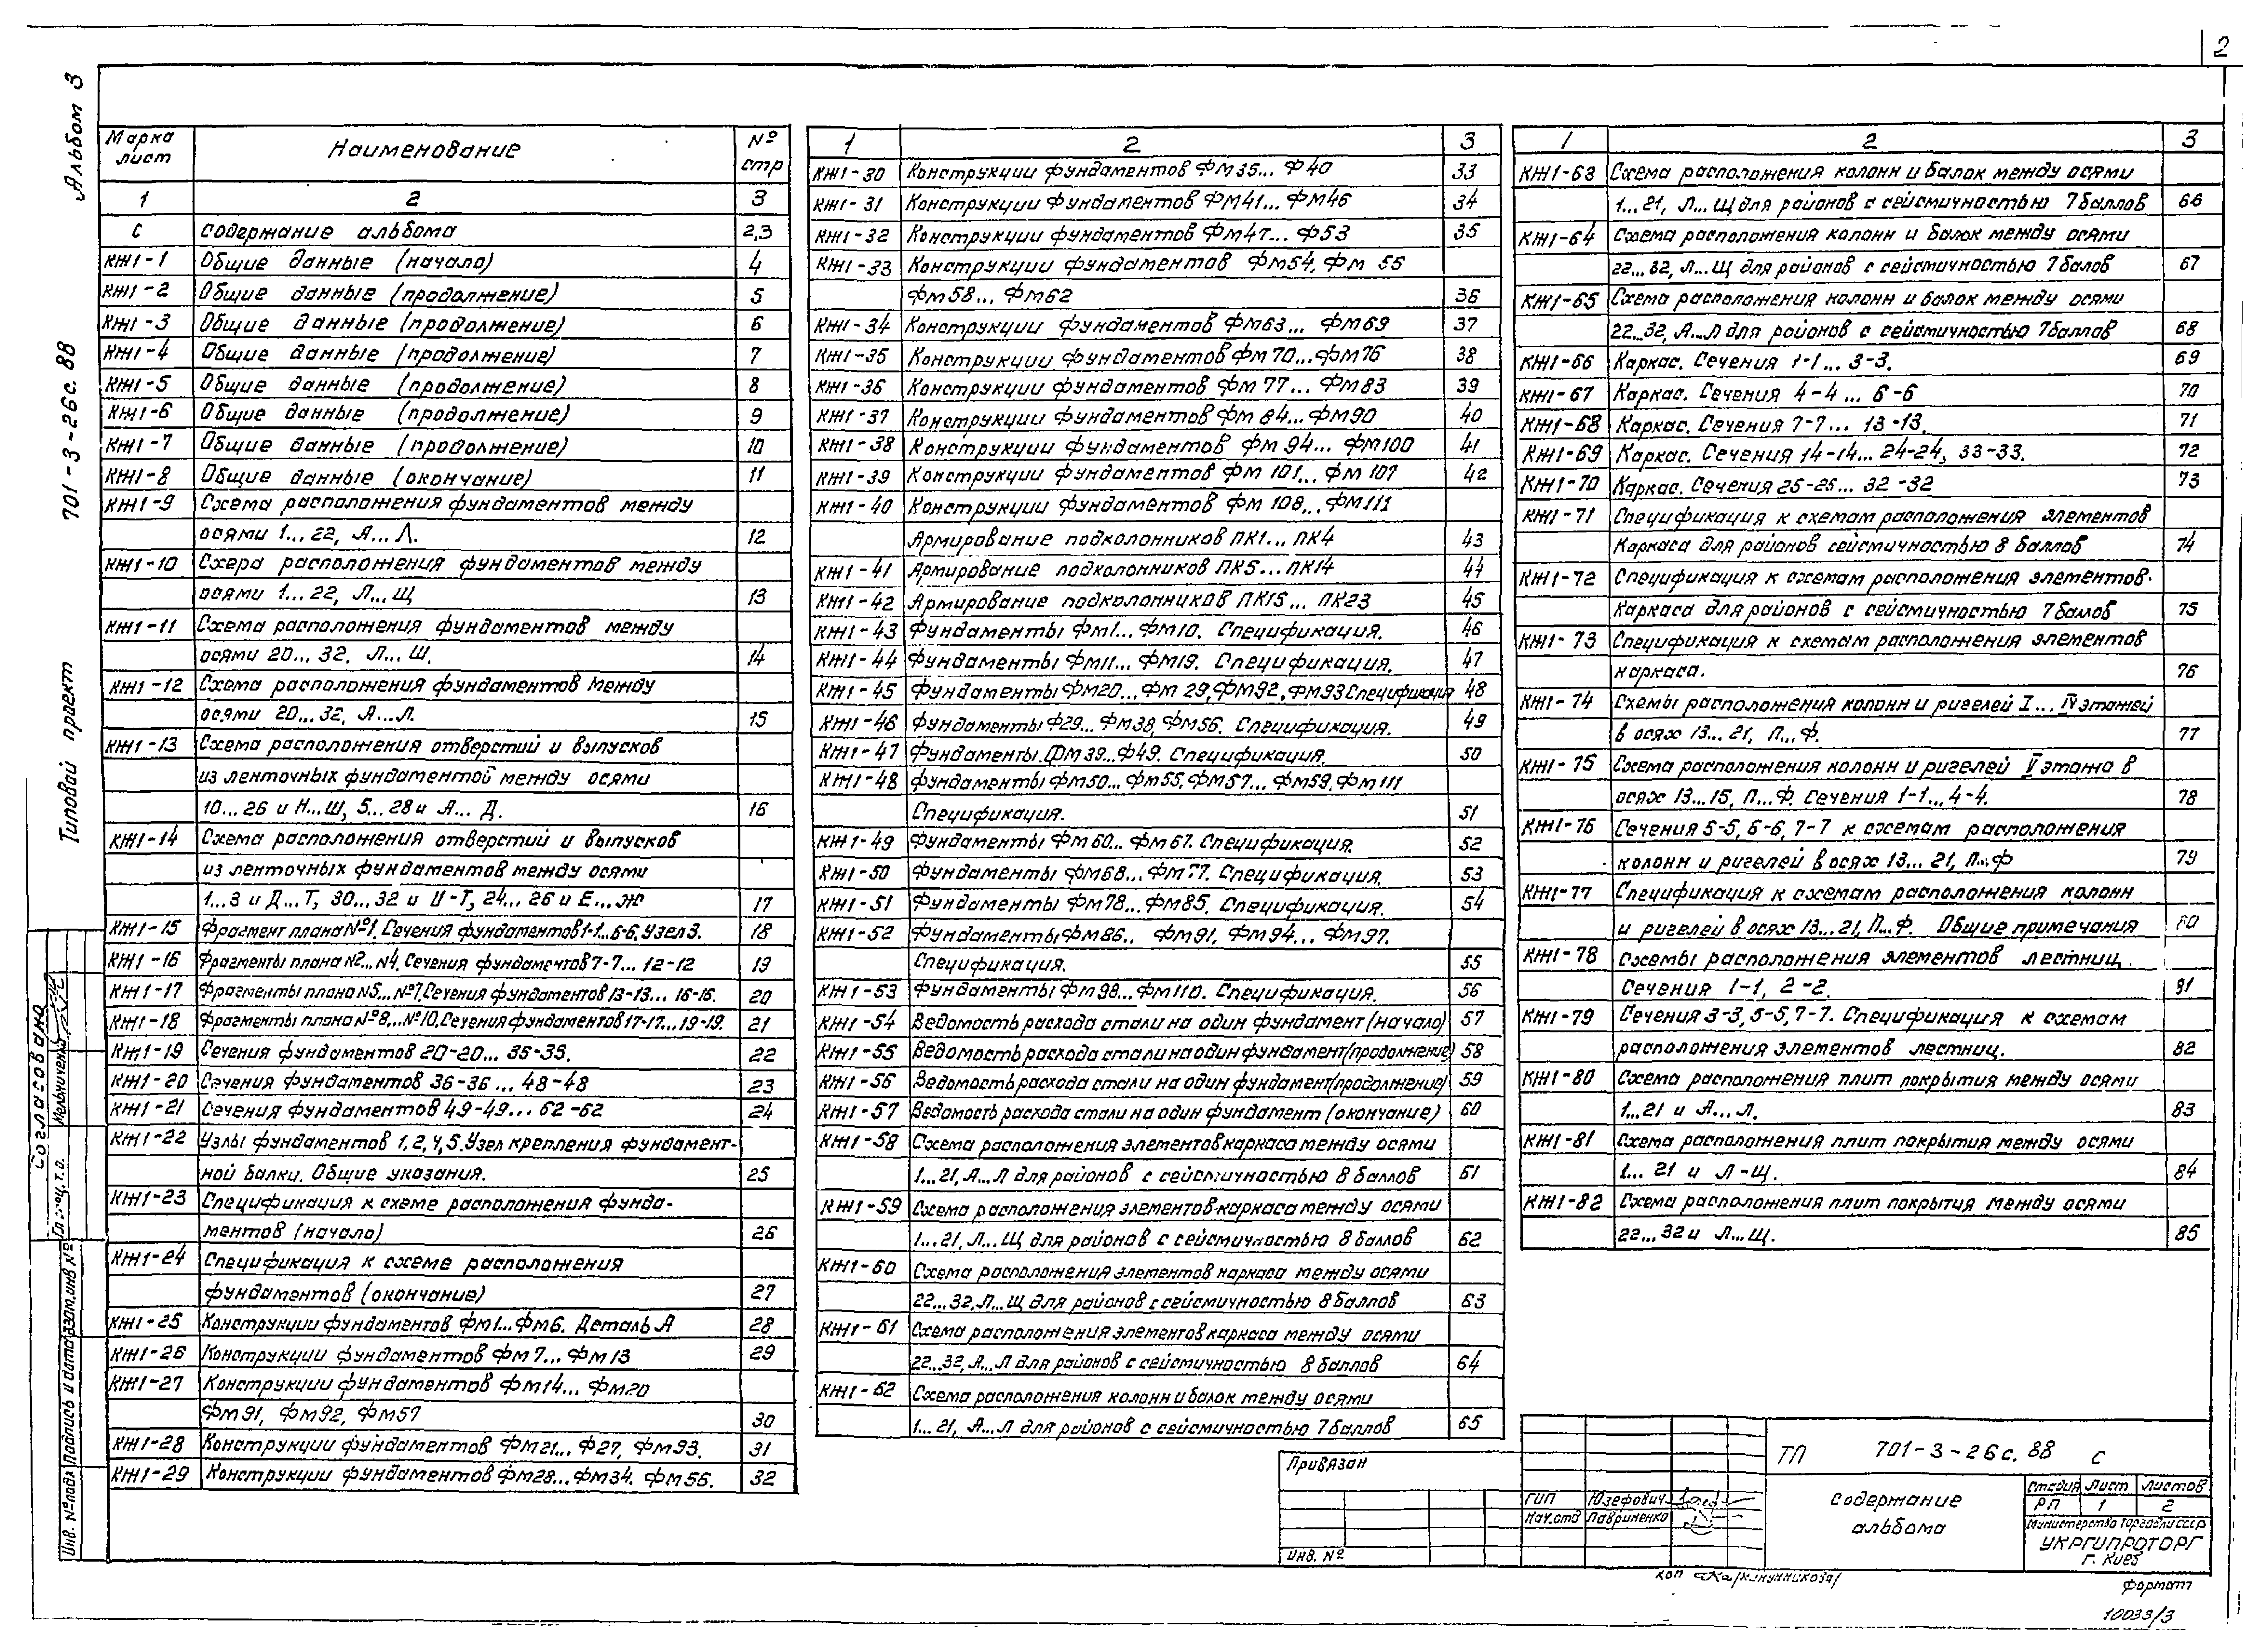 2
Альбом 3
701-3-26с.88
Типовой проект
Марка лист | Наименование | № стр
1 | 2 | 3
С | Содержание альбома | 2,3
КЖ1-1 | Общие данные (начало) | 4
КЖ1-2 | Общие данные (продолжение) | 5
КЖ1-3 | Общие данные (продолжение) | 6
КЖ1-4 | Общие данные (продолжение) | 7
КЖ1-5 | Общие данные (продолжение) | 8
КЖ1-6 | Общие данные (продолжение) | 9
КЖ1-7 | Общие данные (продолжение) | 10
КЖ1-8 | Общие данные (окончание) | 11
КЖ1-9 | Схема расположения фундаментов между
осями 1...22, А...Л. | 12
КЖ1-10 | Схера расположения фундаментов между
осями 1...22, Л...Щ | 13
КЖ1-11 | Схема расположения фундаментов между
осями 20...32. Л...Ш. | 14
КЖ1-12 | Схема расположения фундаментов между
осями 20...32, А...Л. | 15
КЖ1-13 | Схема расположения отверстий и выпусков
из ленточных фундаментой между осями
10...26 и Н...Ш, 5...28 и А...Д. | 16
КЖ1-14 | Схема расположения отверстий и выпусков
из ленточных фундаментов между осями
1...3 и Д...Т, 30...32 и И-Т, 24...26 и Е...Ж | 17
КЖ1-15 | Фрагмент плана №1. Сечения фундаментов 1-1...6-6. Узел 3. | 18
КЖ1-16 | Фрагменты плана N2...N4. Сечения фундаментов 7-7...12-12 | 19
КЖ1-17 | Фрагменты плана N5...№7. Сечения фундаментов 13-13...16-16. | 20
КЖ1-18 | Фрагменты плана №8...№10. Сечения фундаментов 17-17...19-19. | 21
КЖ1-19 | Сечения фундаментов 20-20...35-35. | 22
КЖ1-20 | Сечения фундаментов 36-36...48-48 | 23
КЖ1-21 | Сечения фундаментов 49-49...62-62 | 24
КЖ1-22 | Узлы фундаментов 1, 2, 4, 5. Узел крепления фундамент-
ной балки. Общие указания. | 25
КЖ1-23 | Спецификация к схеме расположения фунда-
ментов (начало) | 26
КЖ1-24 | Спецификация к схеме расположения
фундаментов (окончание) | 27
КЖ1-25 | Конструкции фундаментов Фм1...Фм6. Деталь А | 28
КЖ1-26 | Конструкции фундаментов Фм7...Фм13 | 29
КЖ1-27 | Конструкции фундаментов Фм14...Фм20
Фм91, Фм92, Фм57 | 30
КЖ1-28 | Конструкции фундаментов Фм21...Ф27, Фм93. | 31
КЖ1-29 | Конструкции фундаментов Фм28...Фм34. Фм56. | 32
1 | 2 | 3
КЖ1-30 | Конструкции фундаментов Фм35...Ф40 | 33
КЖ1-31 | Конструкции фундаментов Фм41...Фм46 | 34
КЖ1-32 | Конструкции фундаментов Фм47...Ф53 | 35
КЖ1-33 | Конструкции фундаментов Фм54, Фм 55
Фм58...Фм62 | 36
КЖ1-34 | Конструкции фундаментов Фм63...Фм69 | 37
КЖ1-35 | Конструкции фундаментов Фм70...Фм76 | 38
КЖ1-36 | Конструкции фундаментов Фм77...Фм83 | 39
КЖ1-37 | Конструкции фундаментов Фм 84...Фм90 | 40
КЖ1-38 | Конструкции фундаментов Фм 94...Фм100 | 41
КЖ1-39 | Конструкции фундаментов Фм 101...Фм 107 | 42
КЖ1-40 | Конструкции фундаментов Фм 108...Фм111
Армирование подколонников ПК1...ПК4 | 43
КЖ1-41 | Армирование подколонников ПК5...ПК14 | 44
КЖ1-42 | Армирование подколонников ПК15...ПК23 | 45
КЖ1-43 | Фундаменты Фм1...Фм10. Спецификация. | 46
КЖ1-44 | Фундаменты Фм11...Фм19. Спецификация. | 47
КЖ1-45 | Фундаменты Фм20...Фм 29, Фм92, Фм93 Спецификация | 48
КЖ1-46 | Фундаменты Ф29...Фм38, Фм56. Спецификация. | 49
КЖ1-47 | Фундаменты Фм39...Ф49. Спецификация. | 50
КЖ1-48 | Фундаменты Фм50...Фм55, Фм57...Фм59, Фм111
Спецификация. | 51
КЖ1-49 | Фундаменты Фм60...Фм67. Спецификация. | 52
КЖ1-50 | Фундаменты Фм68...Фм77. Спецификация. | 53
КЖ1-51 | Фундаменты Фм78...Фм85. Спецификация. | 54
КЖ1-52 | Фундаменты Фм86.. Фм91, Фм94...Фм97.
Спецификация. | 55
КЖ1-53 | Фундаменты Фм98...Фм110. Спецификация. | 56
КЖ1-54 | Ведомость расхода стали на один фундамент (начало) | 57
КЖ1-55 | Ведомость расхода стали на один фундамент (продолжение) | 58
КЖ1-56 | Ведомость расхода стали на один фундамент (продолжение) | 59
КЖ1-57 | Ведомость расхода стали на один фундамент (окончание) | 60
КЖ1-58 | Схема расположения элементов каркаса между осями
1...21, А...Л для районов с сейсмичностью 8 баллов | 61
КЖ1-59 | Схема расположения элементов каркаса между осями
1...21, Л...Щ для районов с сейсмичностью 8 баллов | 62
КЖ1-60 | Схема расположения элементов каркаса между осями
22...32, Л...Щ для районов с сейсмичностью 8 баллов | 63
КЖ1-61 | Схема расположения элементов каркаса между осями
22...32, А...Л для районов с сейсмичностью 8 баллов | 64
КЖ1-62 | Схема расположения колонн и балок между осями
1...21, А...Л для районов с сейсмичностью 7 баллов | 65
1 | 2 | 3
КЖ1-63 | Схема расположения колонн и балок между осями
1...21, Л...Щ для районов с сейсмичностью 7 баллов | 66
КЖ1-64 | Схема расположения колонн и балок между осями
22...32, Л...Щ для районов с сейсмичностью 7 балов | 67
КЖ1-65 | Схема расположения колонн и балок между осями
22...32, А...Л для районов с сейсмичностью 7 баллов | 68
КЖ1-66 | Каркас. Сечения 1-1...3-3. | 69
КЖ1-67 | Каркас. Сечения 4-4...6-6 | 70
КЖ1-68 | Каркас. Сечения 7-7...13-13. | 71
КЖ1-69 | Каркас. Сечения 14-14...24-24, 33-33. | 72
КЖ1-70 | Каркас. Сечения 25-25...32-32 | 73
КЖ1-71 | Спецификация к схемам расположения элементов
Каркаса для районов сейсмичностью 8 баллов | 74
КЖ1-72 | Спецификация к схемам расположения элементов
каркаса для районов с сейсмичностью 7 баллов | 75
КЖ1-73 | Спецификация к схемам расположения элементов
каркаса. | 76
КЖ1-74 | Схемы расположения колонн и ригелей I...IV этажей
в осях 13...21, П...Ф. | 77
КЖ1-75 | Схема расположения колонн и ригелей V этажа в
осях 13...15, П...Ф. Сечения 1-1...4-4. | 78
КЖ1-76 | Сечения 5-5, 6-6, 7-7 к схемам расположения
колонн и ригелей в осях 13...21, П...Ф | 79
КЖ1-77 | Спецификация к схемам расположения колонн
и ригелей в осях 13...21, П...Ф. Общие примечания | 80
КЖ1-78 | Схемы расположения элементов лестниц.
Сечения 1-1, 2-2. | 81
КЖ1-79 | Сечения 3-3, 5-5, 7-7. Спецификация к схемам
расположения элементов лестниц. | 82
КЖ1-80 | Схема расположения плит покрытия между осями
1...21 и А...Л. | 83
КЖ1-81 | Схема расположения плит покрытия между осями
1...21 и Л-Щ. | 84
КЖ1-82 | Схема расположения плит покрытия между осями
22...32 и Л...Щ. | 85
Согласовано
Мельниченко
Инв. № подл. Подпись и дата Взам. инв. №
Привязан
Инв. №
ГИП Юзефович
Нач.отд Лавриненко
ТП 701-3-26с.88 С
Содержание
альбома
Стадия Лист Листов
РП 1 2
Министерство торговли СССР
УКРГИПРОТОРГ
г. Киев
коп
формат
10033/3